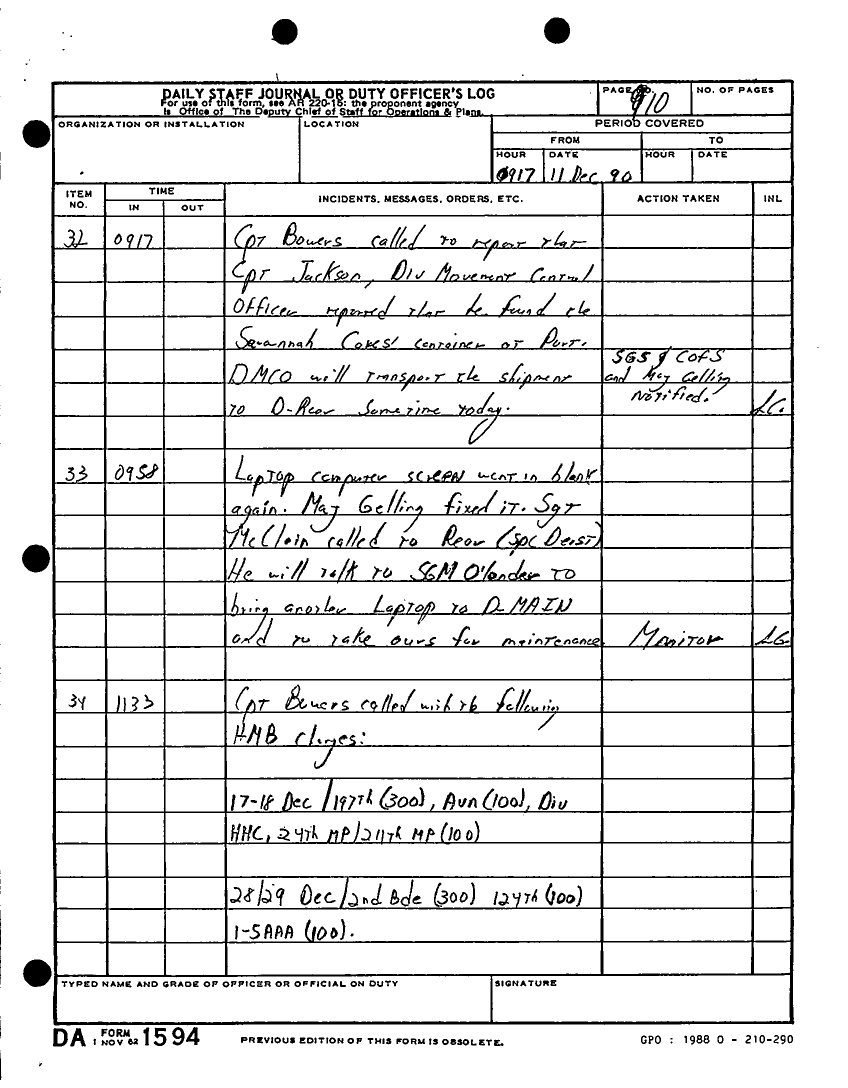 DAILY STAFF JOURNAL OR DUTY OFFICER'S LOG
For use of this form, see AR 220-15; the proponent agency
is Office of The Deputy Chief of Staff for Operations & Plans.
PAGE NO.
10
NO. OF PAGES
ORGANIZATION OR INSTALLATION
LOCATION
PERIOD COVERED
FROM
TO
HOUR
DATE
HOUR
DATE
0917
11 Dec 90
ITEM NO.
TIME
IN
OUT
INCIDENTS, MESSAGES, ORDERS, ETC.
ACTION TAKEN
INL
32 0917 Cpt Bowers called to report that
Cpt Jackson, Div Movement Control
Officer reported that he found the
Savannah Cokes' container at Port.
DMCO will transport the shipment
to D-Rear Sometime today.
SGS & CofS
and Maj Gelling
Notified.
LG.
33 0958 Laptop computer screen went in blank
again. Maj Gelling fixed it. Sgt
McClain called to Rear (Spc Deist)
He will talk to SGM O'lander to
bring another Laptop to D-MAIN
and to take ours for maintenance. Monitor LG.
34 1133 Cpt Bowers called with th following
HMB changes:
17-18 Dec /197th (300), Avn (100), Div
HHC, 24th MP/211th MP (100)
28/29 Dec/2nd Bde (300) 124th (100)
1-5 AAA (100).
TYPED NAME AND GRADE OF OFFICER OR OFFICIAL ON DUTY
SIGNATURE
DA FORM 1594
1 NOV 62
PREVIOUS EDITION OF THIS FORM IS OBSOLETE.
GPO : 1988 O - 210-290